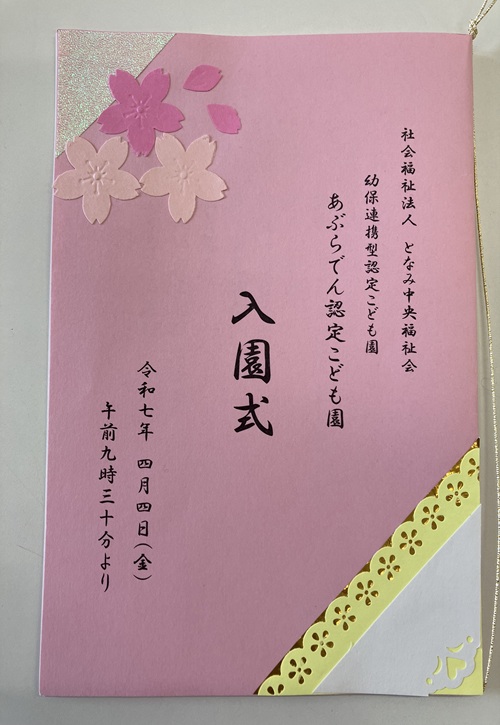 社会福祉法人 となみ中央福祉会
幼保連携型認定こども園
あぶらでん認定こども園
入園式
令和七年 四月四日(金)
午前九時三十分より